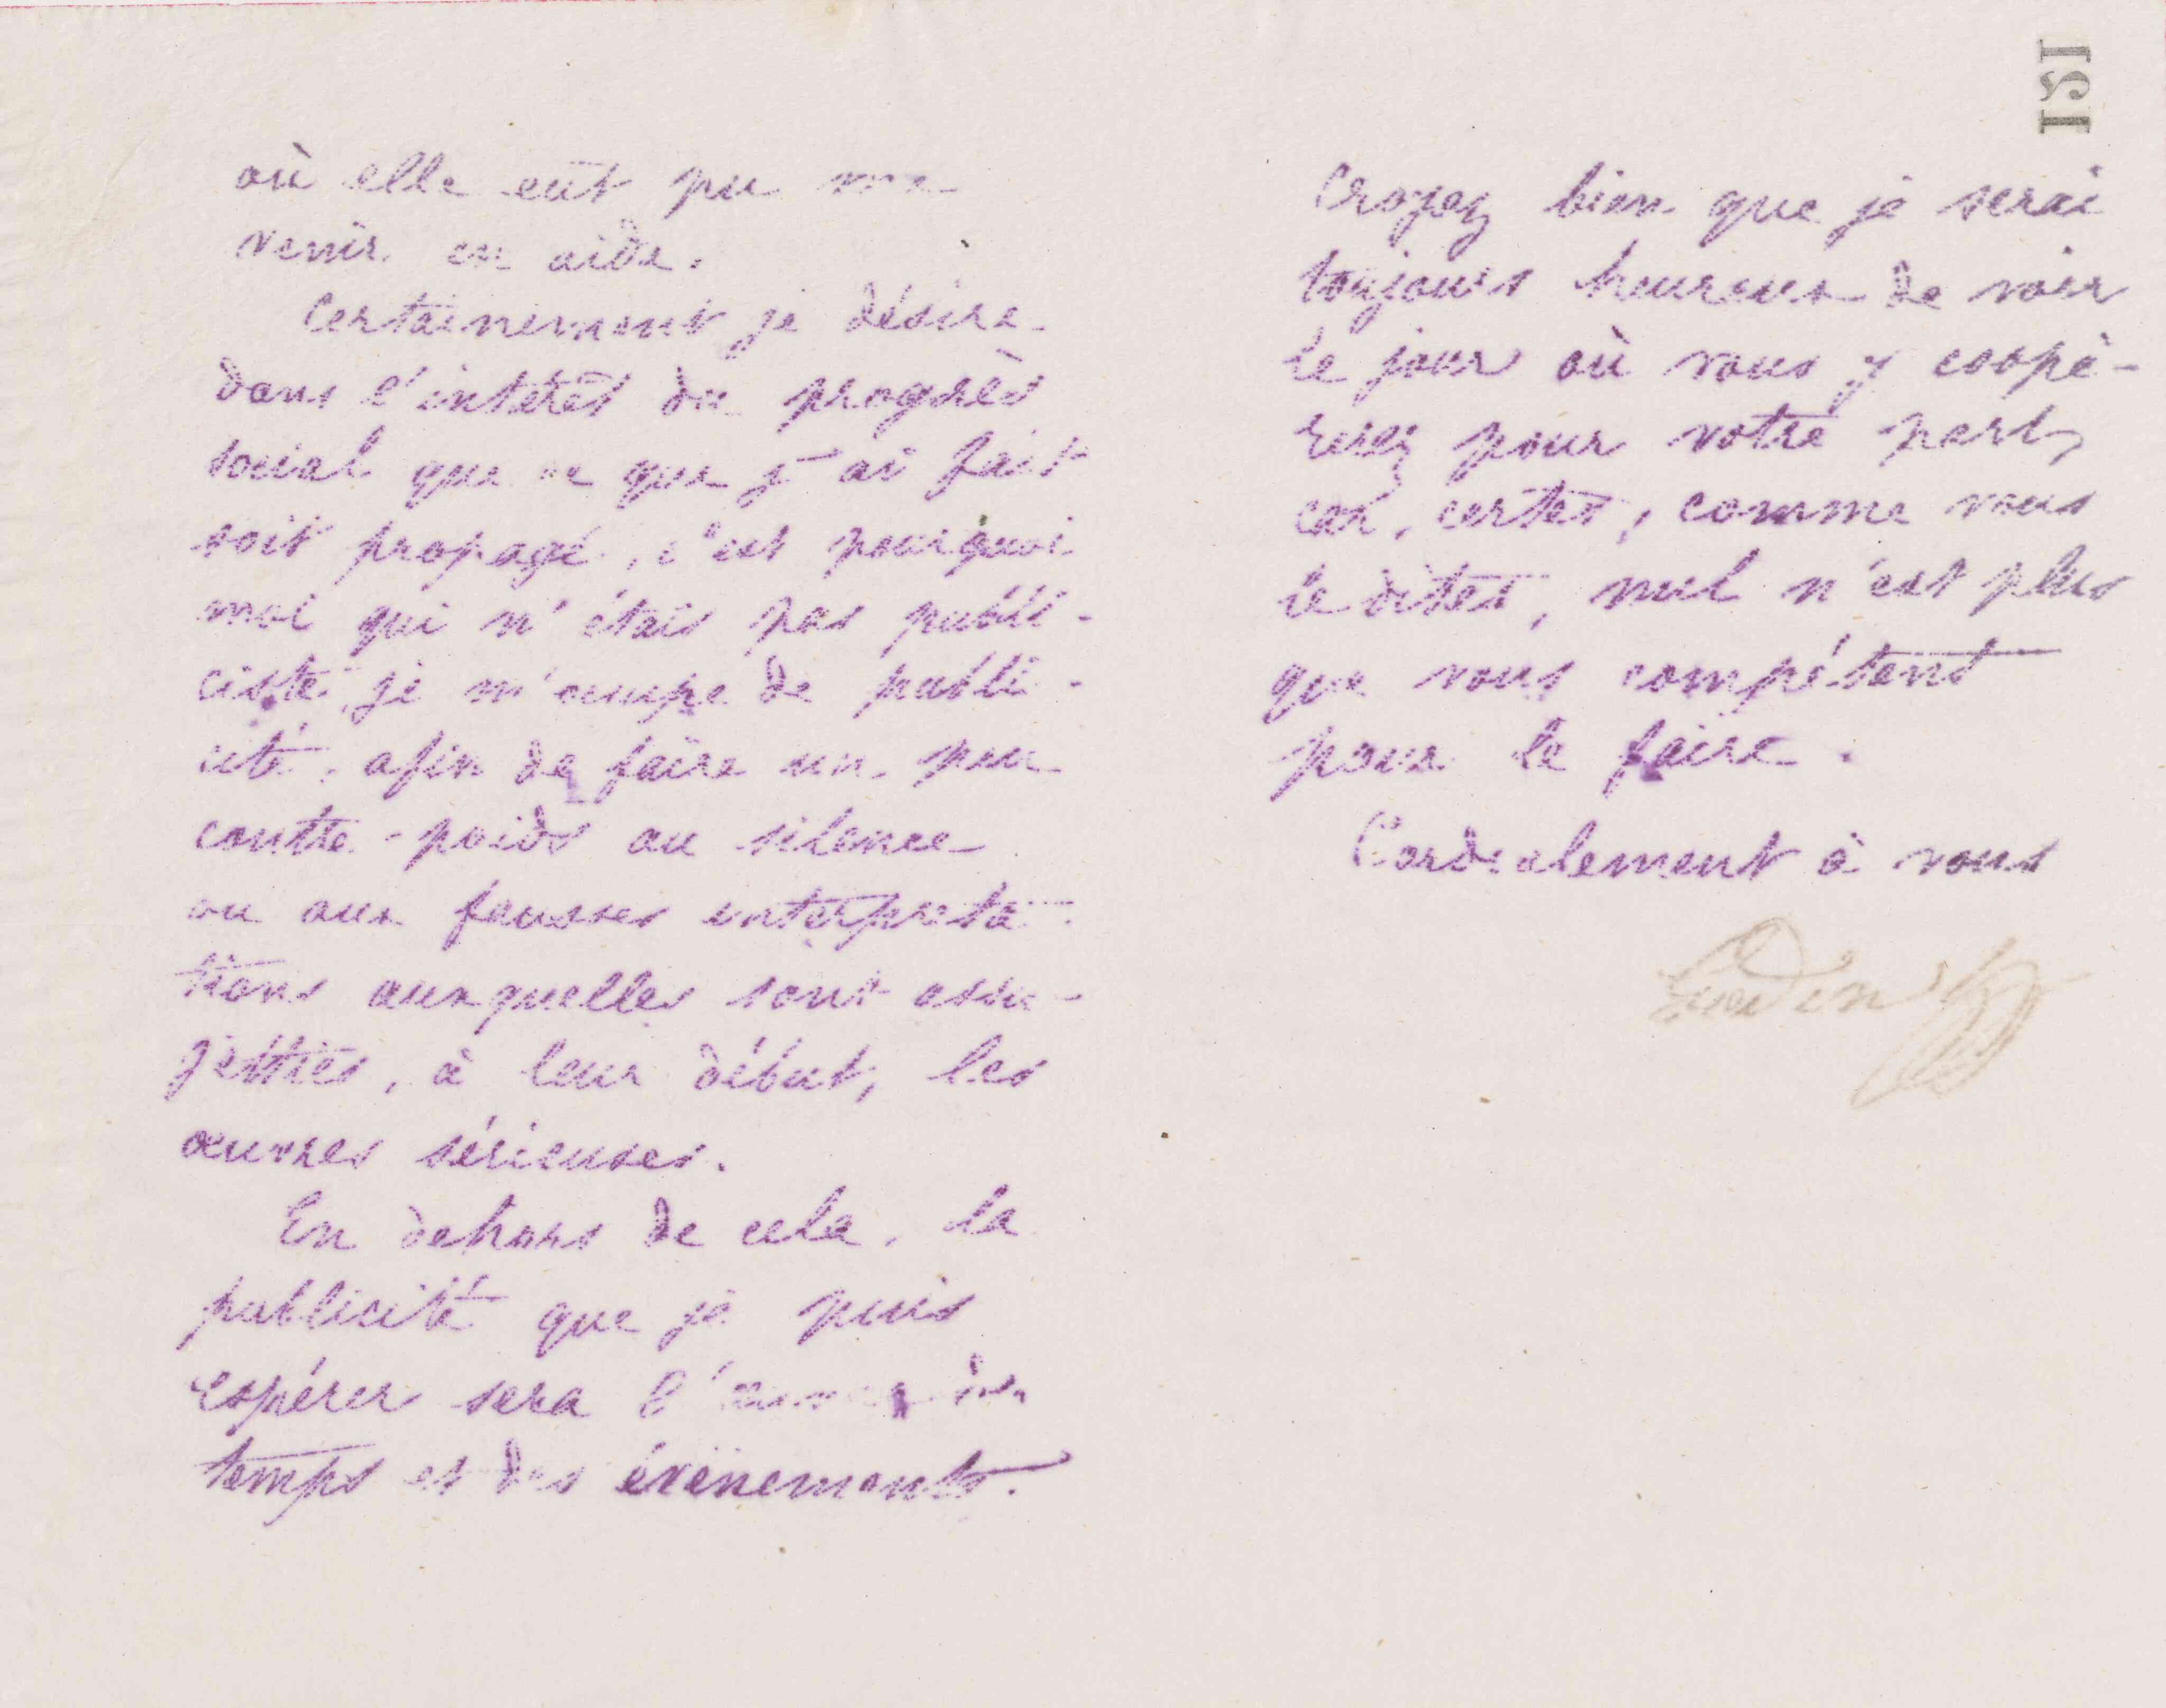 où elle eût pu me
venir en aide.
Certainement je désire
dans l'intérêt du progrès
social que ce que j'ai fait
soit propagé, c'est pourquoi
moi qui n'étais pas publi-
ciste, je m'occupe de publi-
cité, afin de faire un peu
contre-poids au silence
ou aux fausses interpréta-
tions auxquelles sont assu-
jetties, à leur début, les
œuvres sérieuses.
En dehors de cela, la
publicité que je puis
espérer sera l'œuvre du
temps et des évènements.
151
Croyez bien que je serai
toujours heureux de voir
le jour où vous y coopé-
rerez pour votre part,
car, certes, comme vous
le dites, nul n'est plus
que vous compétent
pour le faire.
Cordialement à vous
Godin